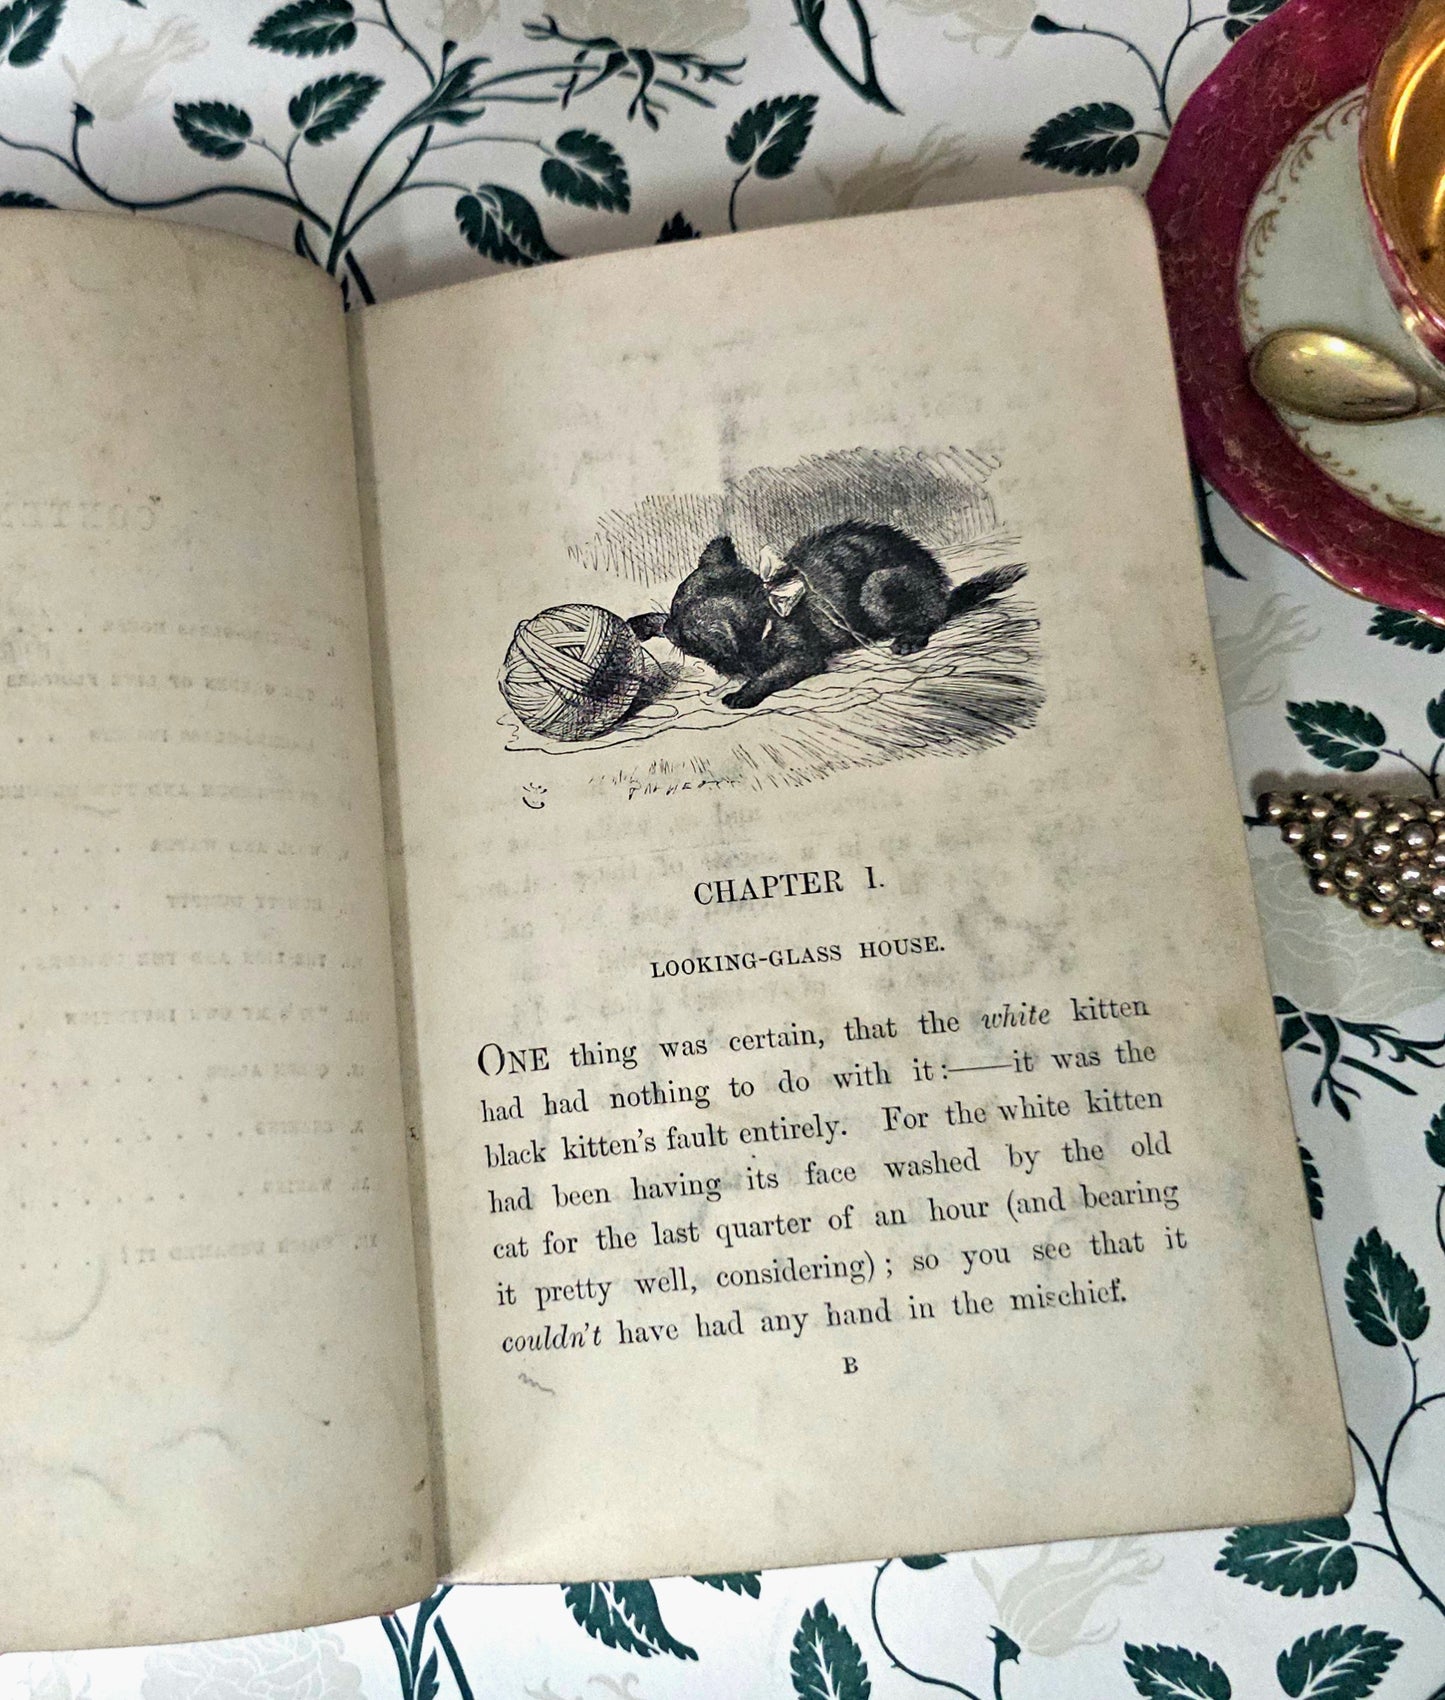 CHAPTER I.
LOOKING-GLASS HOUSE.
ONE thing was certain, that the white kitten
had had nothing to do with it:——it was the
black kitten's fault entirely. For the white kitten
had been having its face washed by the old
cat for the last quarter of an hour (and bearing
it pretty well, considering); so you see that it
couldn't have had any hand in the mischief.
B